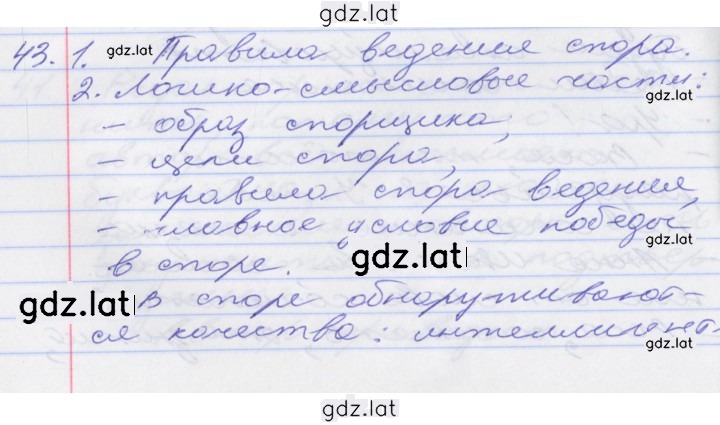 gdz.lat
43. 1. gdz.lat Правила ведения спора.
2. Логико-смысловые части:
gdz.lat
- образ спорщика,
- цели спора,
- правила спора ведения,
- главное условие победы
в споре.
gdz.lat
gdz.lat
gdz.lat В споре обнаруживают-
ся качества: интеллигент-
gdz.lat
gdz.lat